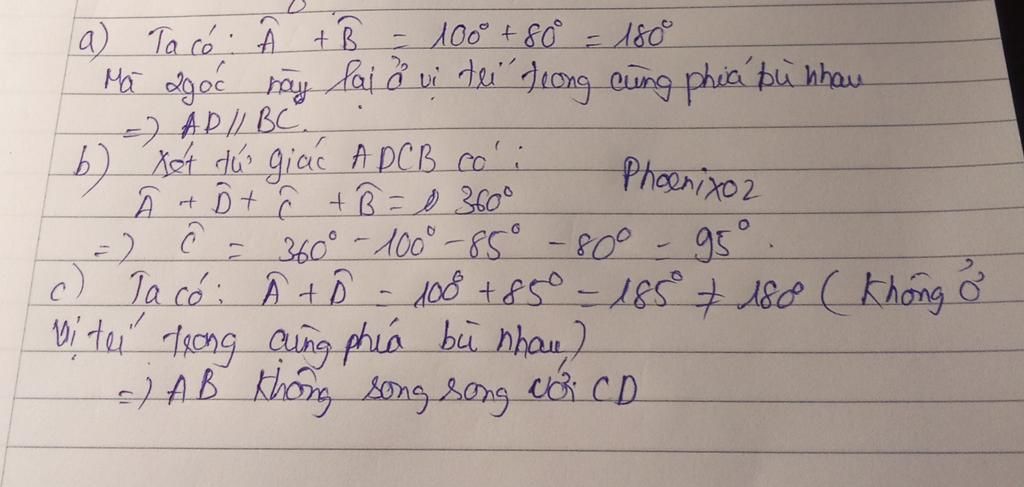 a) Ta có: Â + B̂ = 100° + 80° = 180°
Mà 2 góc này lại ở vị trí trong cùng phía bù nhau
=) AD // BC.
b) Xét tứ giác ADCB có:
Phoenix02
Â + D̂ + Ĉ + B̂ = 360°
=) Ĉ = 360° - 100° - 85° - 80° = 95°.
c) Ta có: Â + D̂ = 100° + 85° = 185° ≠ 180° (Không ở
vị trí trong cùng phía bù nhau)
=) AB không song song với CD